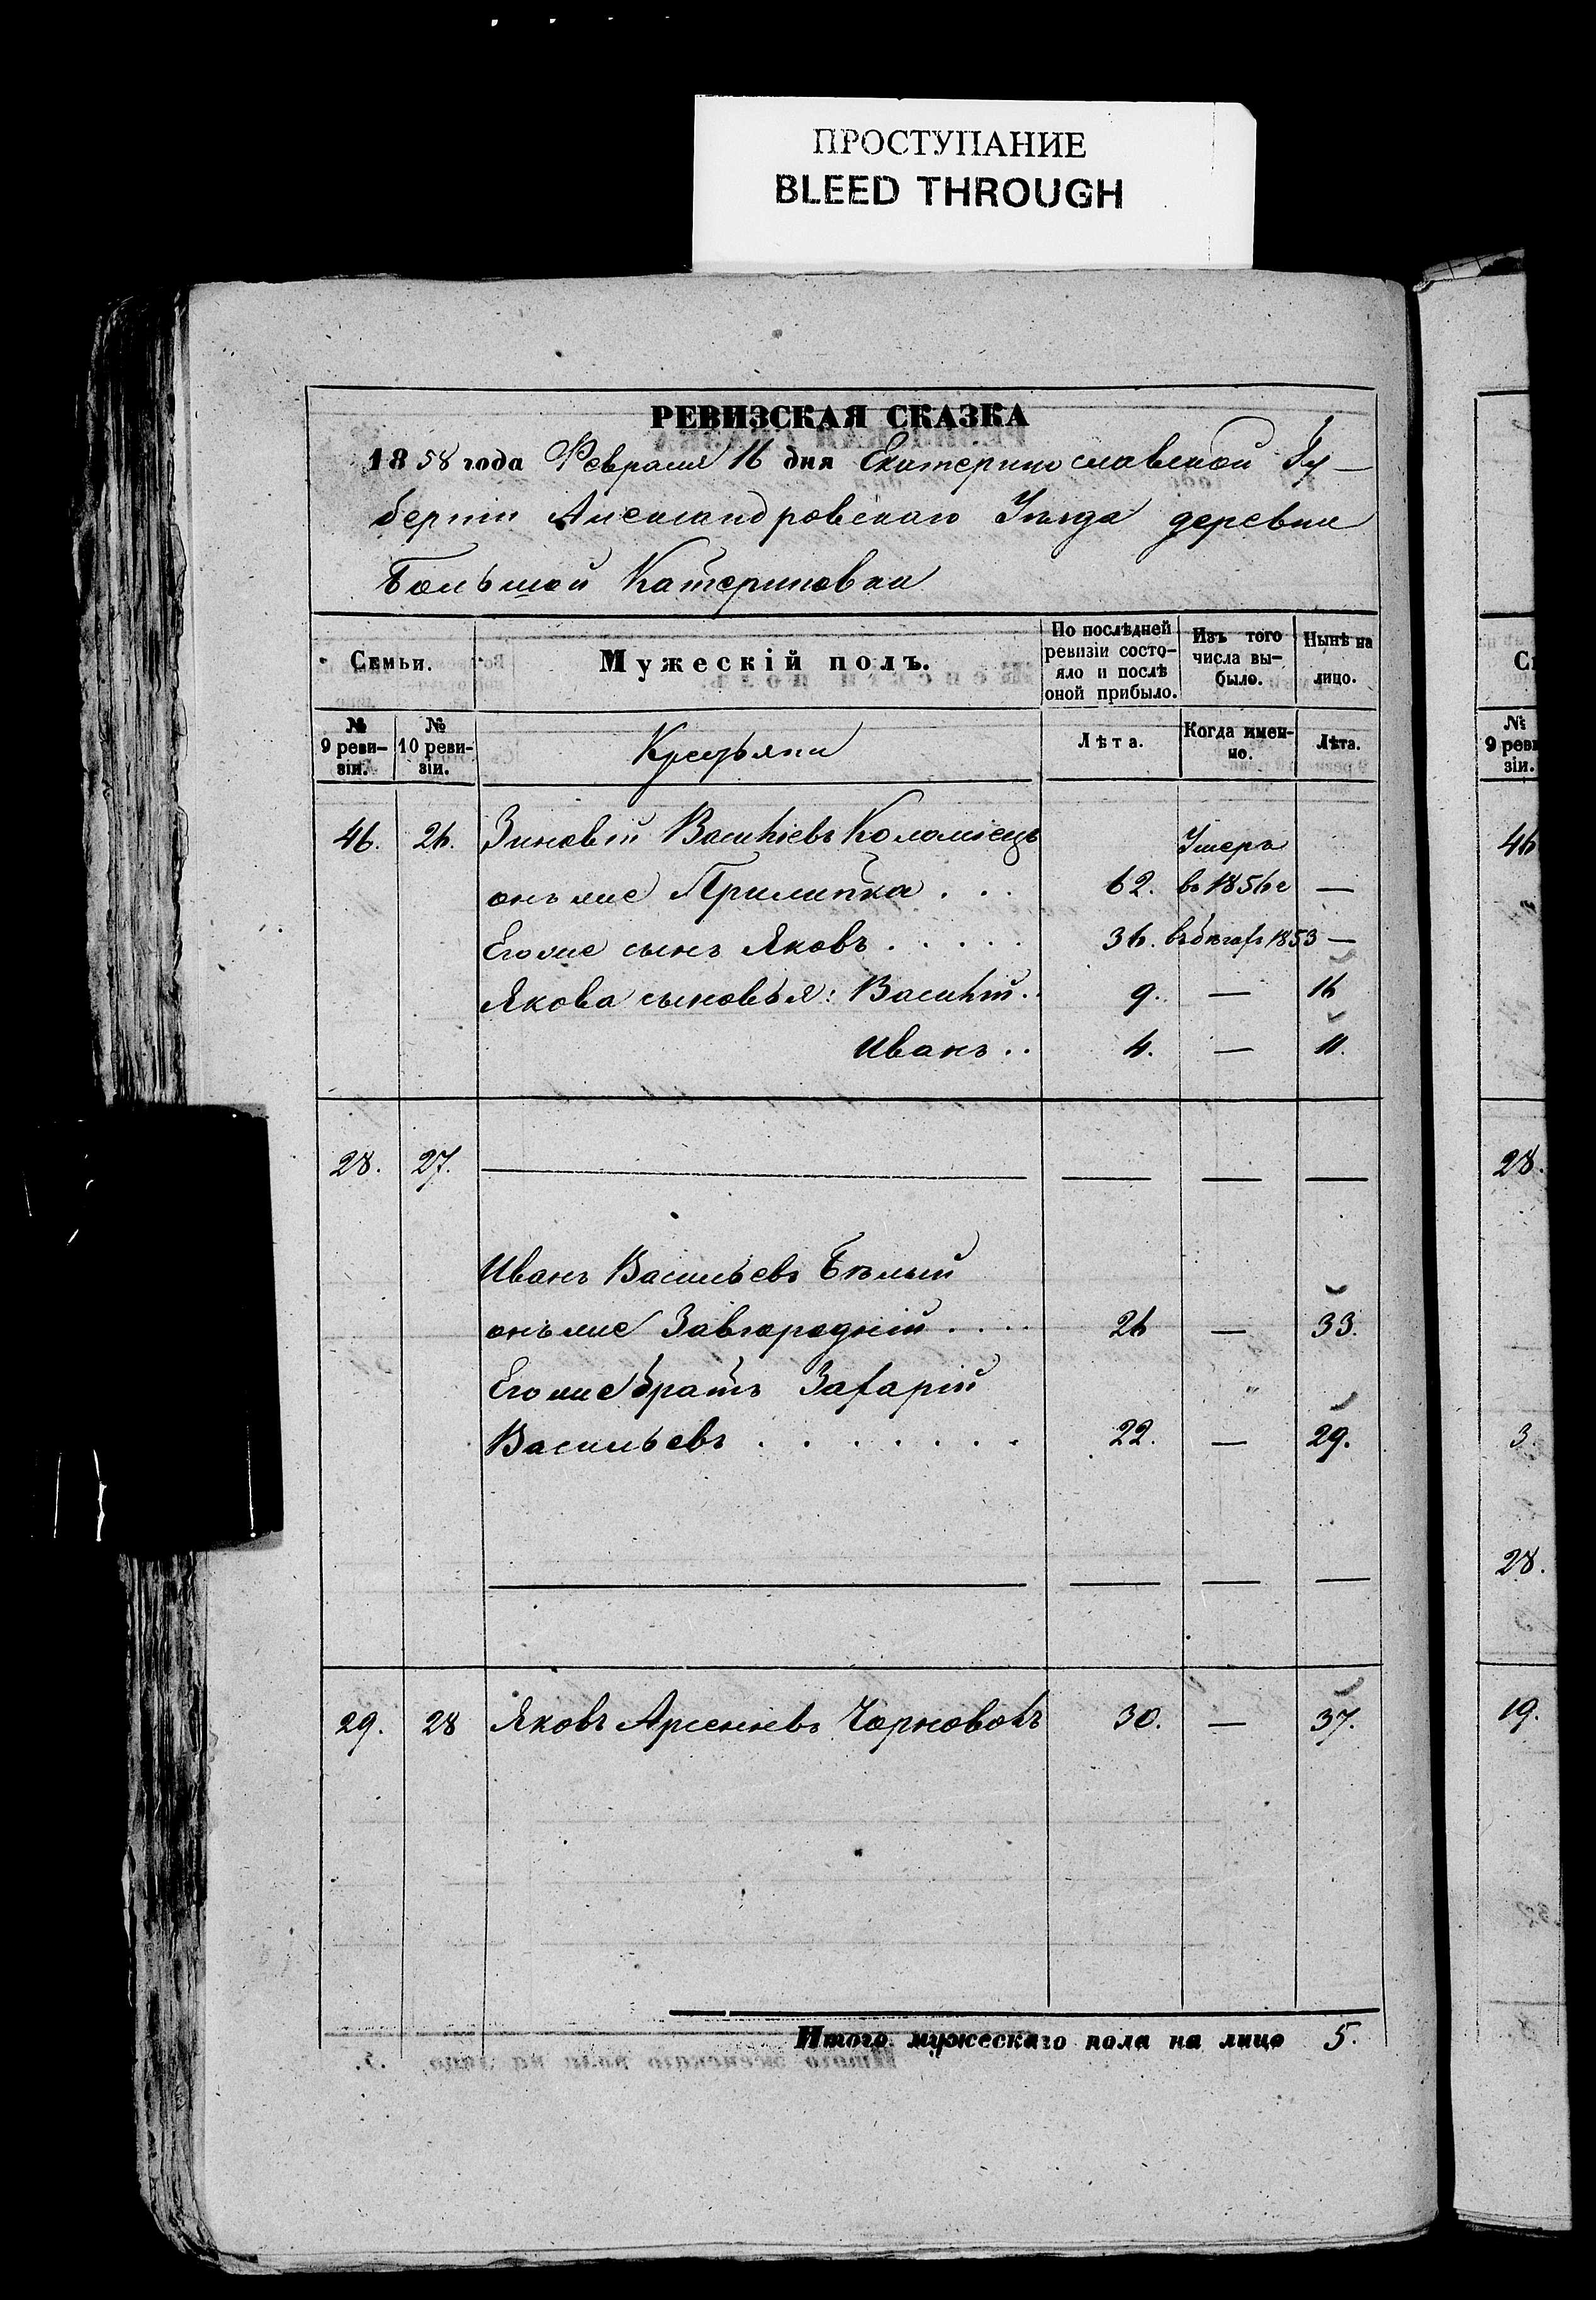 ПРОСТУПАНИЕ
BLEED THROUGH
РЕВИЗСКАЯ СКАЗКА
1858 года Февраля 16 дня Екатеринославской Гу-
берніи Александровскаго Уѣзда деревни
Большой Катериновки
Семьи.
Мужескій полъ.
По послѣдней ревизіи состо-
яло и послѣ оной прибыло.
Изъ того числа вы-
было.
Нынѣ на лицо.
№ 9 реви-
зіи.
№ 10 реви-
зіи.
Крестьяни
Лѣта.
Когда имен-
но.
Лѣта.
46. 26. Зиновій Василіевъ Коломіецъ Умеръ
онъ же Прилипка . . . 62. въ 1856 г —
Его же сынъ Яковъ . . . . . 36. въ бѣгахъ 1853 —
Якова сыновья: Василій . . 9. — 16
Иванъ . . 4. — 11.
28. 27. — — — —
Иванъ Васильевъ Бѣлый
онъ же Завгородній . . . . 26 — 33.
Его же братъ Захарій
Васильевъ . . . . . . . 22. — 29.
— — — —
29. 28 Яковъ Арсеніевъ Чорноволъ 30. — 37.
Итого мужескаго пола на лицо 5.
Се
№ 9 реви
зіи.
46
28.
3
28.
19.